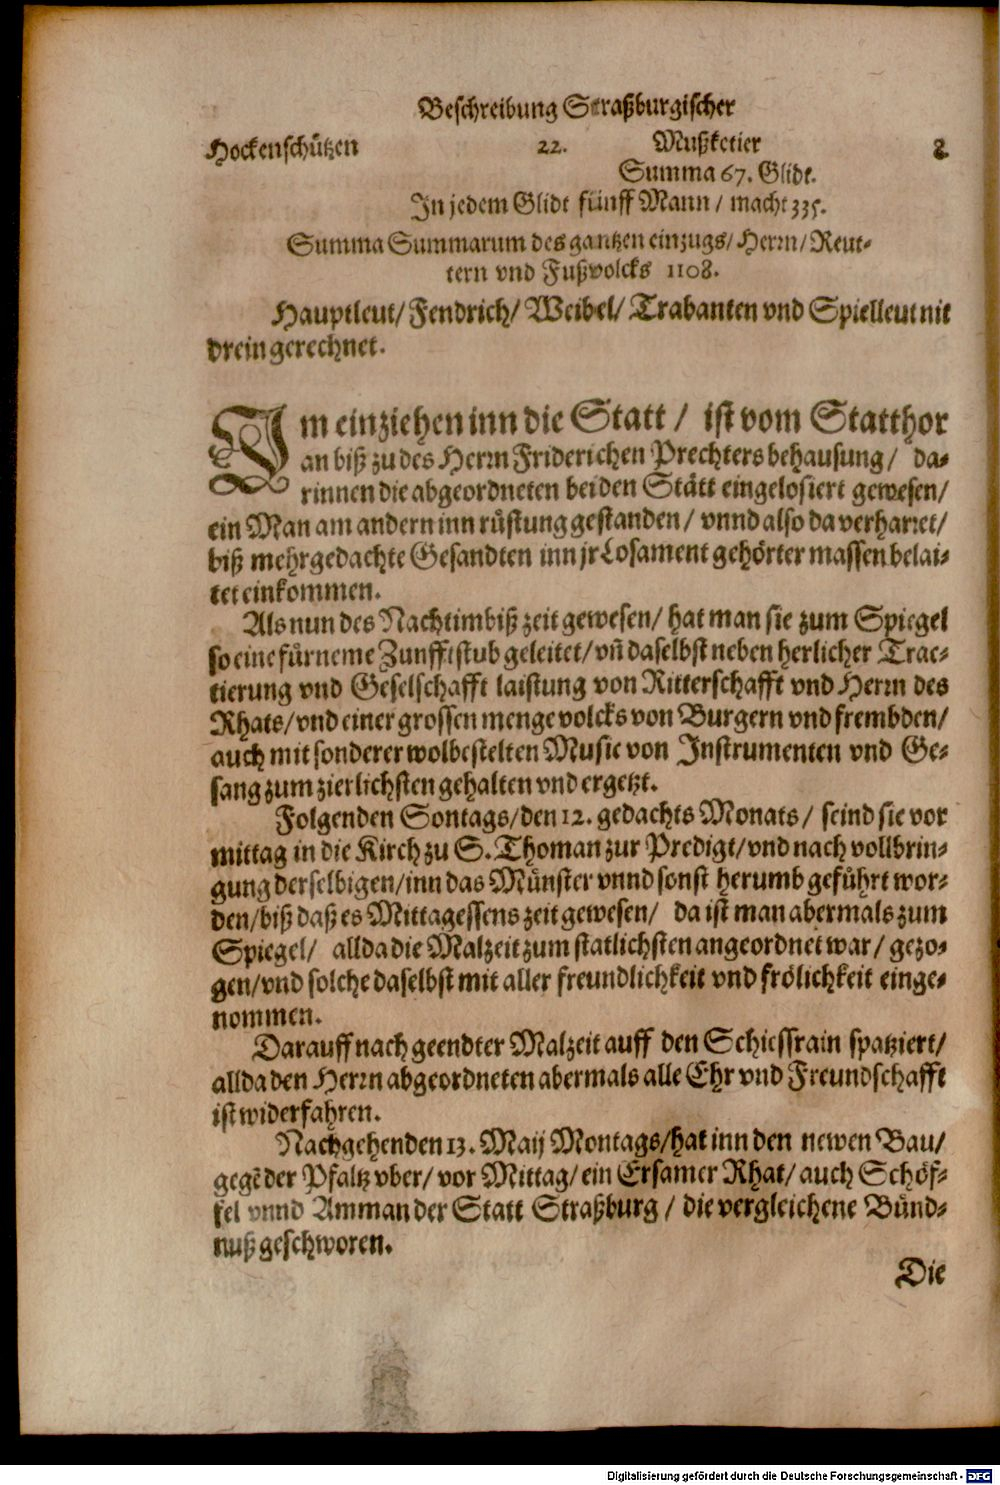 Beschreibung Straßburgischer
Hockenschützen 22. Mußketier 8.
Summa 67. Glidt.
In jedem Glidt fünff Mann / macht 335.
Summa Summarum des gantzen einzugs / Herrn / Reut-
tern vnd Fußvolcks 1108.
Hauptleut / Fendrich / Weibel / Trabanten vnd Spielleut nit
drein gerechnet.
Im einziehen inn die Statt / ist vom Statthor
an biß zu des Herrn Friderichen Prechters behausung / da-
rinnen die abgeordneten beiden Stätt eingelosiert gewesen /
ein Man am andern inn rüstung gestanden / vnnd also da verharret /
biß mehrgedachte Gesandten inn jr Losament gehörter massen belai-
tet einkommen.
Als nun des Nachtimbiß zeit gewesen / hat man sie zum Spiegel
so eine fürneme Zunfftstub geleitet / vñ daselbst neben herlicher Trac-
tierung vnd Geselschafft laistung von Ritterschafft vnd Herrn des
Rhats / vnd einer grossen menge volcks von Burgern vnd frembden /
auch mit sonderer wolbestelten Music von Instrumenten vnd Ge-
sang zum zierlichsten gehalten vnd ergetzt.
Folgenden Sontags / den 12. gedachts Monats / seind sie vor
mittag in die Kirch zu S. Thoman zur Predigt / vnd nach vollbrin-
gung derselbigen / inn das Münster vnnd sonst herumb geführt wor-
den / biß daß es Mittagessens zeit gewesen / da ist man abermals zum
Spiegel / allda die Malzeit zum statlichsten angeordnet war / gezo-
gen / vnd solche daselbst mit aller freundlichkeit vnd frölichkeit einge-
nommen.
Darauff nach geendter Malzeit auff den Schiessrain spatziert /
allda den Herrn abgeordneten abermals alle Ehr vnd Freundschafft
ist widerfahren.
Nachgehenden 13. Maij Montags / hat inn den newen Bau /
gegẽ der Pfaltz vber / vor Mittag / ein Ersamer Rhat / auch Schöf-
fel vnnd Amman der Statt Straßburg / die vergleichene Bünd-
nuß geschworen.
Die
Digitalisierung gefördert durch die Deutsche Forschungsgemeinschaft - DFG